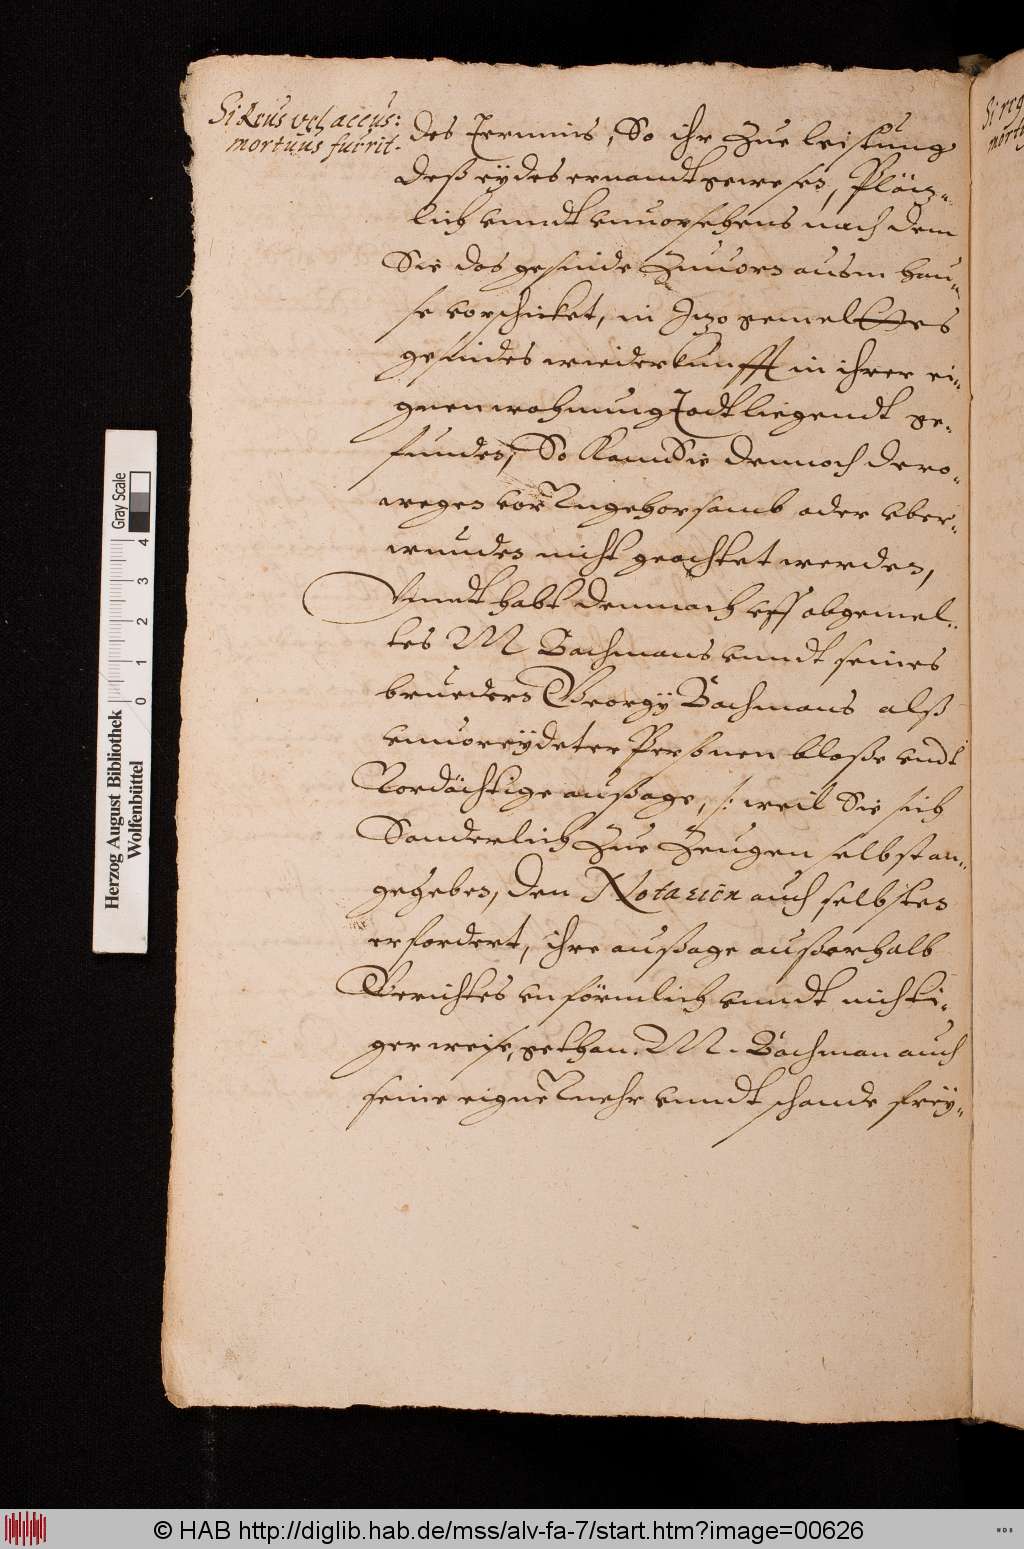 Si Reus vel accus:
mortuus fuerit.
des Termins, So ihr Zue leistung
deß eydes ernandt gewesen, Plötz-
lich vnndt vnuorsehens nach dem
Sie das gesinde Zuuorn ausm hau-
se vorschicket, in Itzo gemeltes
gesindes wiederkunfft in ihrer ei-
gnen wohnung Todt liegendt ge-
funden, So kann Sie dennoch dero-
wegen vor Vngehorsamb oder vber-
wunden nicht geachtet werden,
Vnndt habt demnach vff obgemel-
tes M Bachmans vnndt seines
brueders Georgy Bachmans alß
vnuoreydeter Persönen bloße vndt
Vordächtige außage, /: weil Sie sich
Sonderlich Zue Zeugen selbst an-
gegeben, den Notarien auch selbsten
erfordert, ihre außage außerhalb
Gerichtes vnförmlich vnndt nichti-
ger weise, gethan. M. Bachman auch
seine eigne Vnehr vnndt schande frey-
Si re
mort
Herzog August Bibliothek
Wolfenbüttel
0 1 2 3 4
Gray Scale
© HAB http://diglib.hab.de/mss/alv-fa-7/start.htm?image=00626